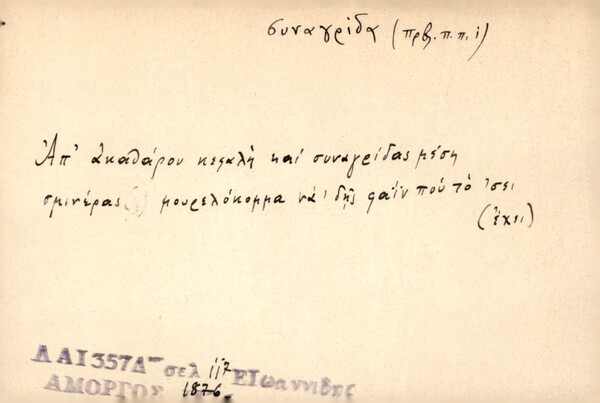 συναγρίδα (πρβ. π. π. ί)
Ἀπ' ἀκαθάρου κεφαλὴ καί συναγρίδας μέση
σμινέρας μουρελόκομμα νά 'δῇς φαΐν πού τὸ 'σει
(ἔχει)
ΛΑΙ357Δ σελ 117 ΕΙωαννίδης
ΑΜΟΡΓΟΣ 1876.